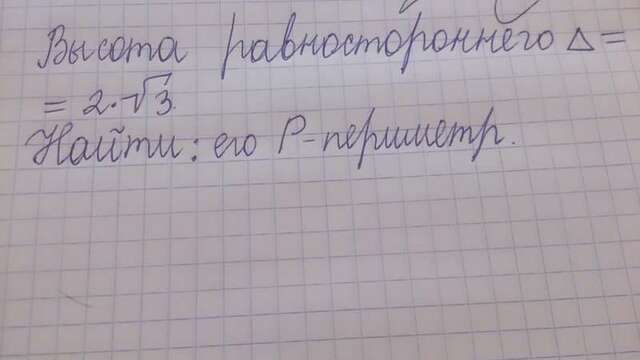 Высота равностороннего Δ =
= 2·√3
Найти: его P-периметр.